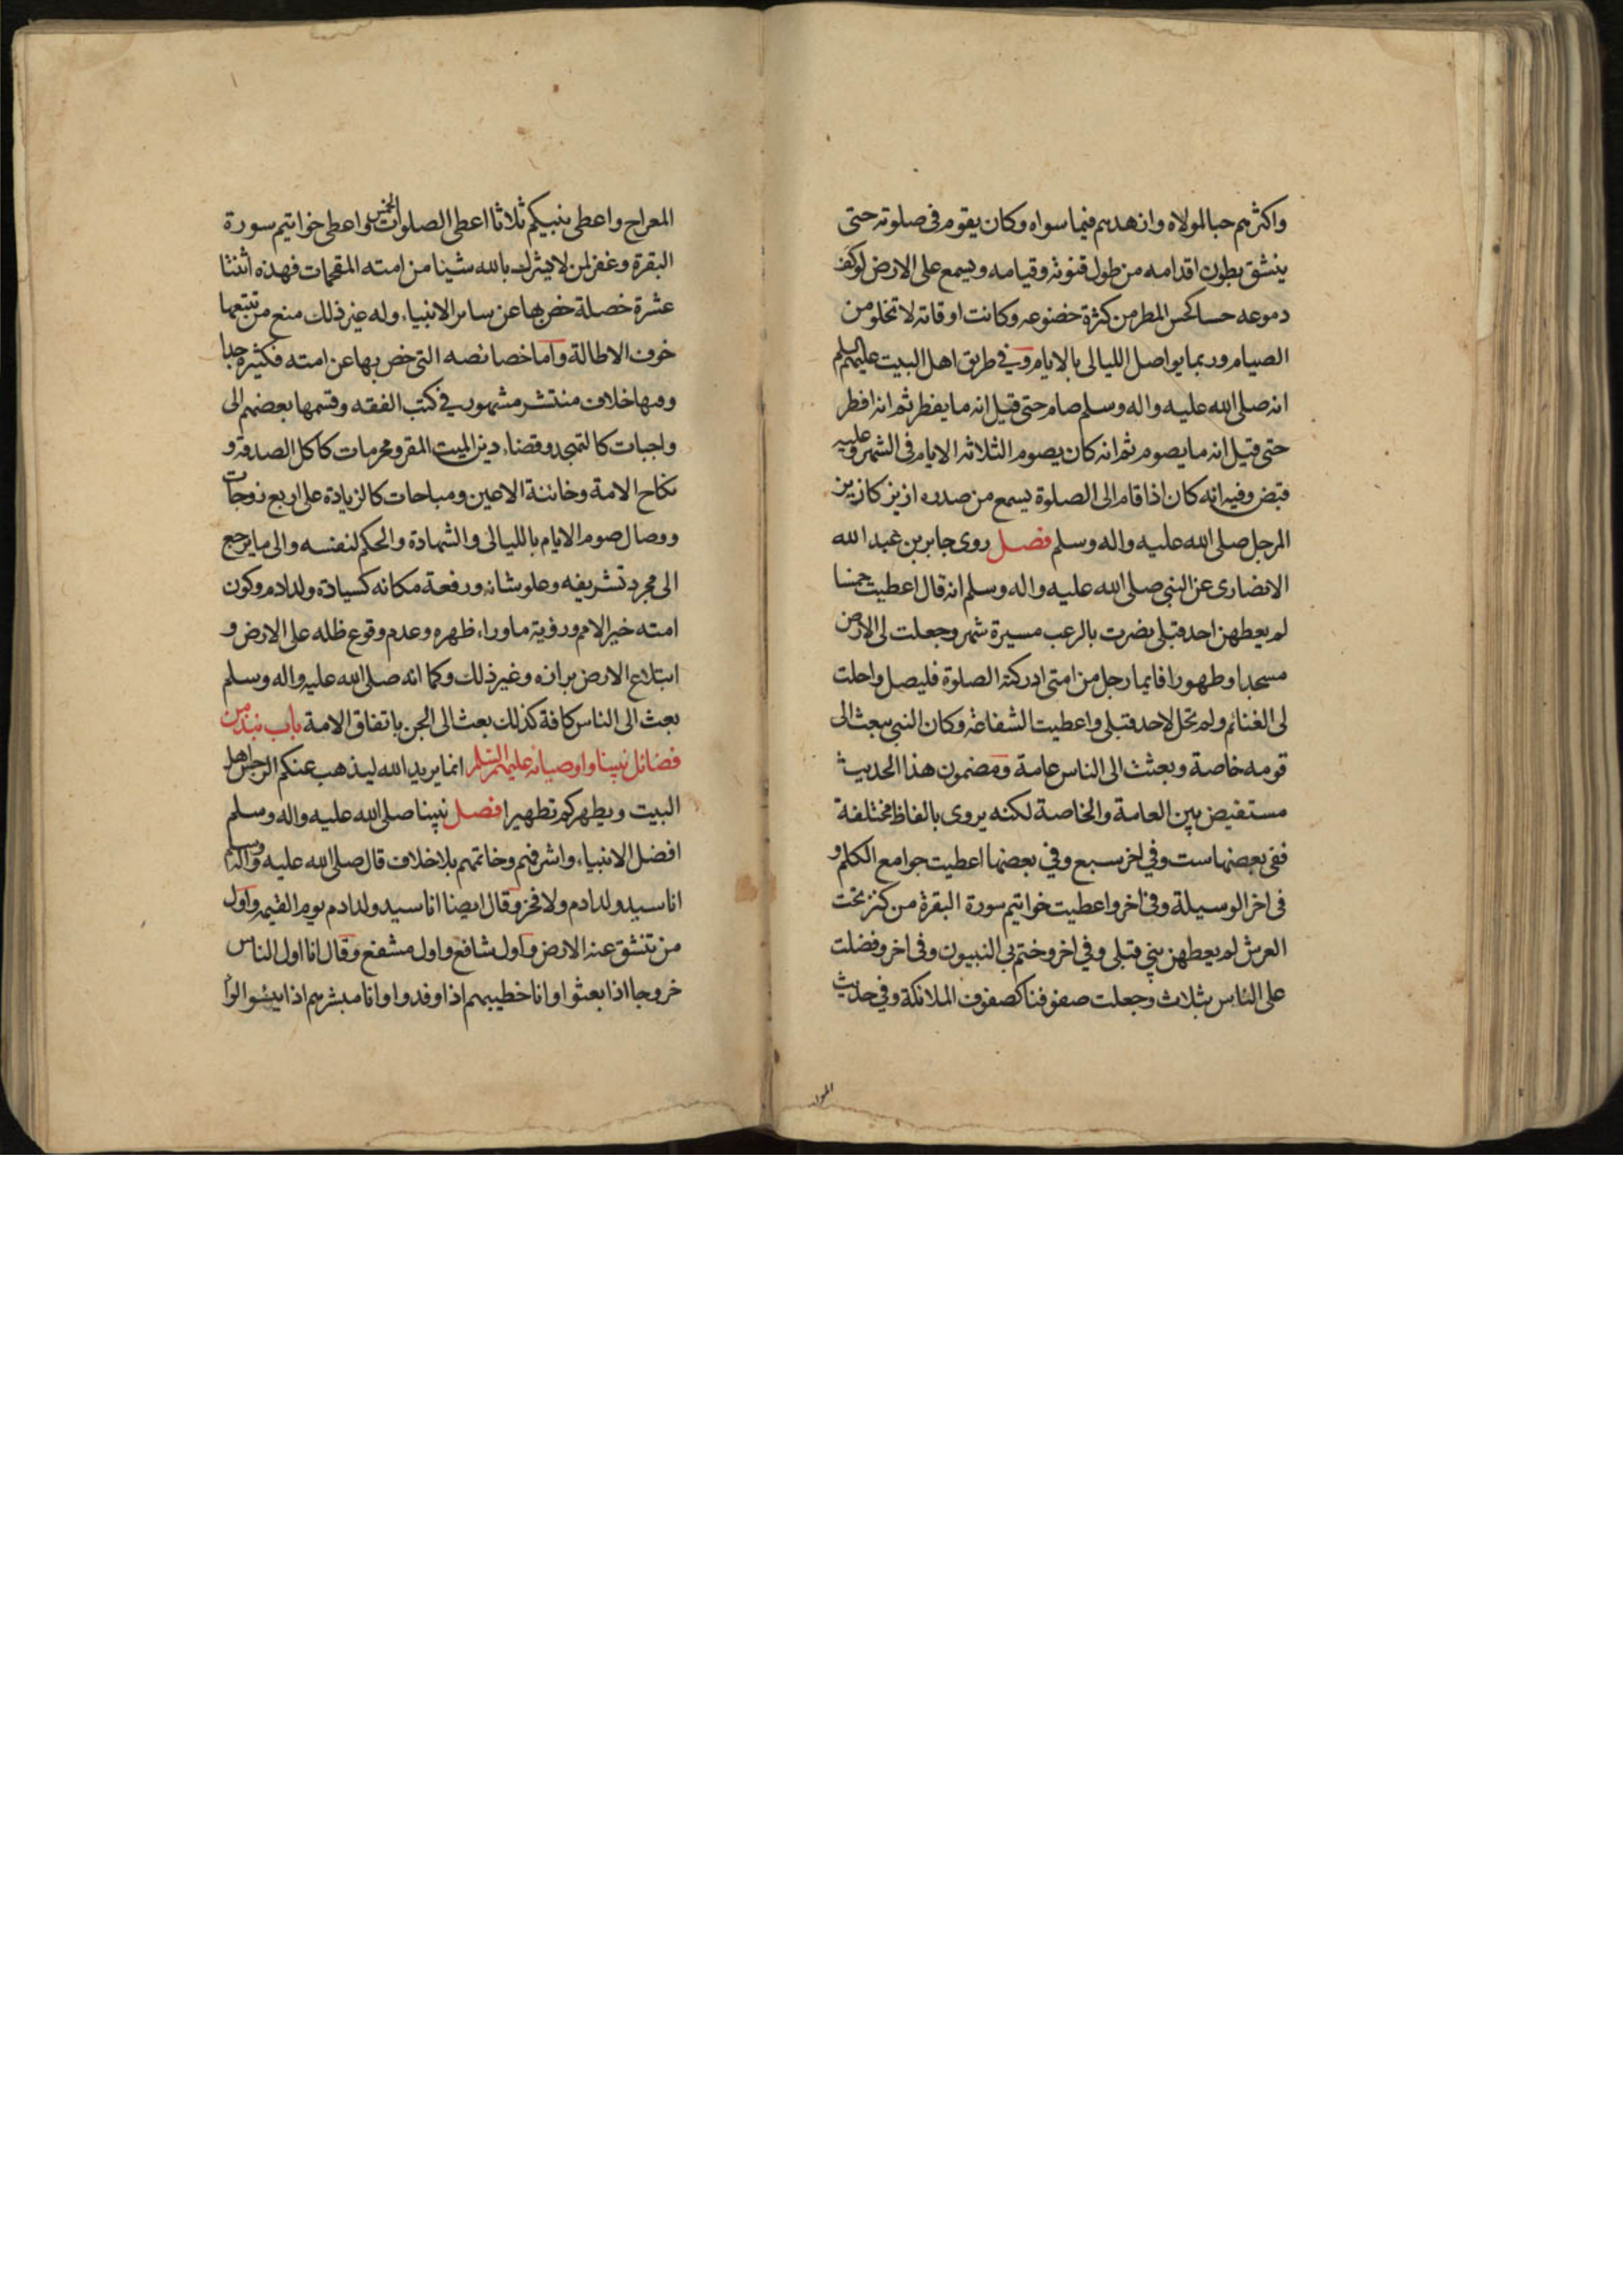 واكثرهم حبا لمولاه وازهدهم فيما سواه وكان يقوم فى صلوته حتى
ينشق بطون اقدامه من طول قنوته وقيامه ويسمع على الارض لوكف
دموعه حسا كحس المطر من كثرة خضوعه وكانت اوقاته لا تخلو من
الصيام وربما يواصل الليالى بالايام وفي طريق اهل البيت عليهم السلم
انه صلى الله عليه واله وسلم صام حتى قيل انه ما يفطر ثم انه افطر
حتى قيل انه ما يصوم ثم انه كان يصوم الثلاثه الايام فى الشهر وعليه
قبض وفيه انه كان اذا قام الى الصلوة يسمع من صدره ازيز كازيز
المرجل صلى الله عليه واله وسلم فصل روى جابر بن عبد الله
الانصارى عن النبى صلى الله عليه واله وسلم انه قال اعطيت خمسا
لم يعطهن احد قبلى نصرت بالرعب مسيرة شهر وجعلت لى الارض
مسجدا وطهورا فايما رجل من امتى ادركته الصلوة فليصل واحلت
لى الغنائم ولم تحل لاحد قبلى واعطيت الشفاعة وكان النبى يبعث الى
قومه خاصة وبعثت الى الناس عامة ومضمون هذا الحديث
مستفيض بين العامة والخاصة لكنه يروى بالفاظ مختلفة
ففى بعضها ست وفي اخر سبع وفي بعضها اعطيت جوامع الكلم و
فى اخر الوسيلة وفى اخر واعطيت خواتيم سورة البقرة من كنز تحت
العرش لم يعطهن نبي قبلى وفي اخر وختم بي النبيون وفى اخر وفضلت
على الناس بثلاث وجعلت صفوفنا كصفوف الملائكة وفي حديث
المعراج
المعراج واعطى نبيكم ثلاثا اعطى الصلوات الخمس واعطى خواتيم سورة
البقرة وغفر لمن لا يشرك بالله شيئا من امته المقحمات فهذه اثنتا
عشرة خصلة خص بها عن سائر الانبياء وله غير ذلك منع من تتبعها
خوف الاطالة واما خصائصه التى خص بها عن امته فكثيرة جدا
وفيها خلاف منتشر مشهور في كتب الفقه وقسمها بعضهم الى
واجبات كالتهجد وقضاء دين الميت المقر ومحرمات كاكل الصدقة و
نكاح الامة وخائنة الاعين ومباحات كالزيادة على اربع زوجات
ووصال صوم الايام بالليالى والشهادة والحكم لنفسه والى ما يرجع
الى مجرد تشريفه وعلو شانه ورفعة مكانه كسيادة ولد ادم وكون
امته خير الامم ورؤية ما وراء ظهره وعدم وقوع ظله على الارض و
ابتلاع الارض برازه وغير ذلك وكما انه صلى الله عليه واله وسلم
بعث الى الناس كافة كذلك بعث الى الجن باتفاق الامة باب نبذ من
فضائل نبينا واوصيائه عليهم السلم انما يريد الله ليذهب عنكم الرجس اهل
البيت ويطهركم تطهيرا فصل نبينا صلى الله عليه واله وسلم
افضل الانبياء واشرفهم وخاتمهم بلا خلاف قال صلى الله عليه واله وسلم
انا سيد ولد ادم ولا فخر وقال ايضا انا سيد ولد ادم يوم القيمه واول
من تنشق عنه الارض واول شافع واول مشفع وقال انا اول الناس
خروجا اذا بعثوا وانا خطيبهم اذا وفدوا وانا مبشرهم اذا يئسوا